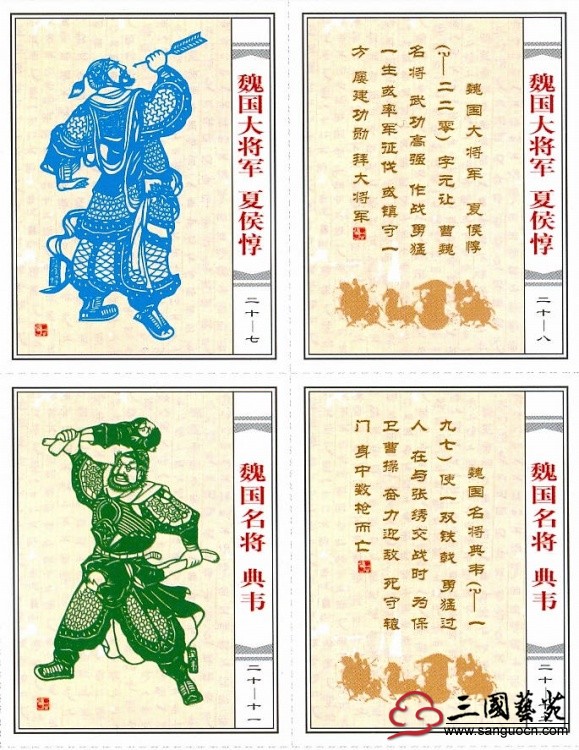 魏国大将军 夏侯惇
二十—七
魏国大将军 夏侯惇
(?—二二零) 字元让 曹魏
名将 武功高强 作战勇猛
一生或率军征伐 或镇守一
方 屡建功勋 拜大将军
魏国大将军 夏侯惇
二十—八
魏国名将 典韦
二十—十一
魏国名将典韦(?—一
九七) 使一双铁戟 勇猛过
人 在与张绣交战时 为保
卫曹操 奋力迎敌 死守辕
门 身中数枪而亡
魏国名将 典韦
二十
三國藝苑
www.sanguocn.com